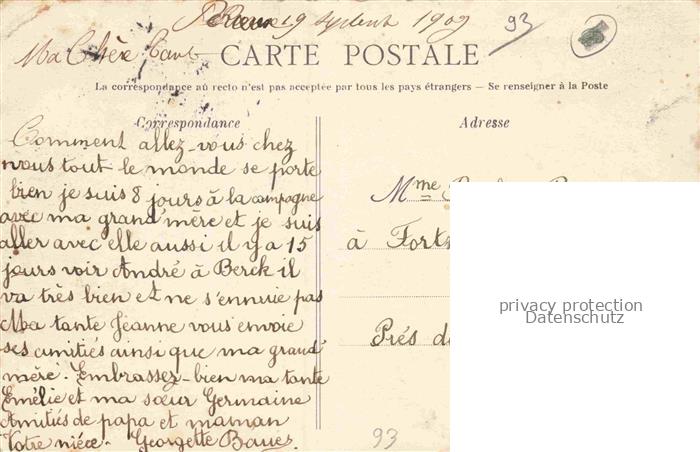 19 Septembre 1909
93
Ma Chère Tante
CARTE POSTALE
La correspondance au recto n'est pas acceptée par tous les pays étrangers — Se renseigner à la Poste
Correspondance
Adresse
Comment allez-vous chez
nous tout le monde se porte
bien je suis 8 jours à la campagne
avec ma grand'mère et je suis
aller avec elle aussi il y a 15
jours voir André à Berck il
va très bien et ne s'ennuie pas
Ma tante Jeanne vous envoie
ses amitiés ainsi que ma grand'
mère. Embrassez-bien ma tante
Emélie et ma sœur Germaine
Amitiés de papa et maman
Votre nièce. Georgette
Mme
à Fort
Prés d
93
privacy protection
Datenschutz